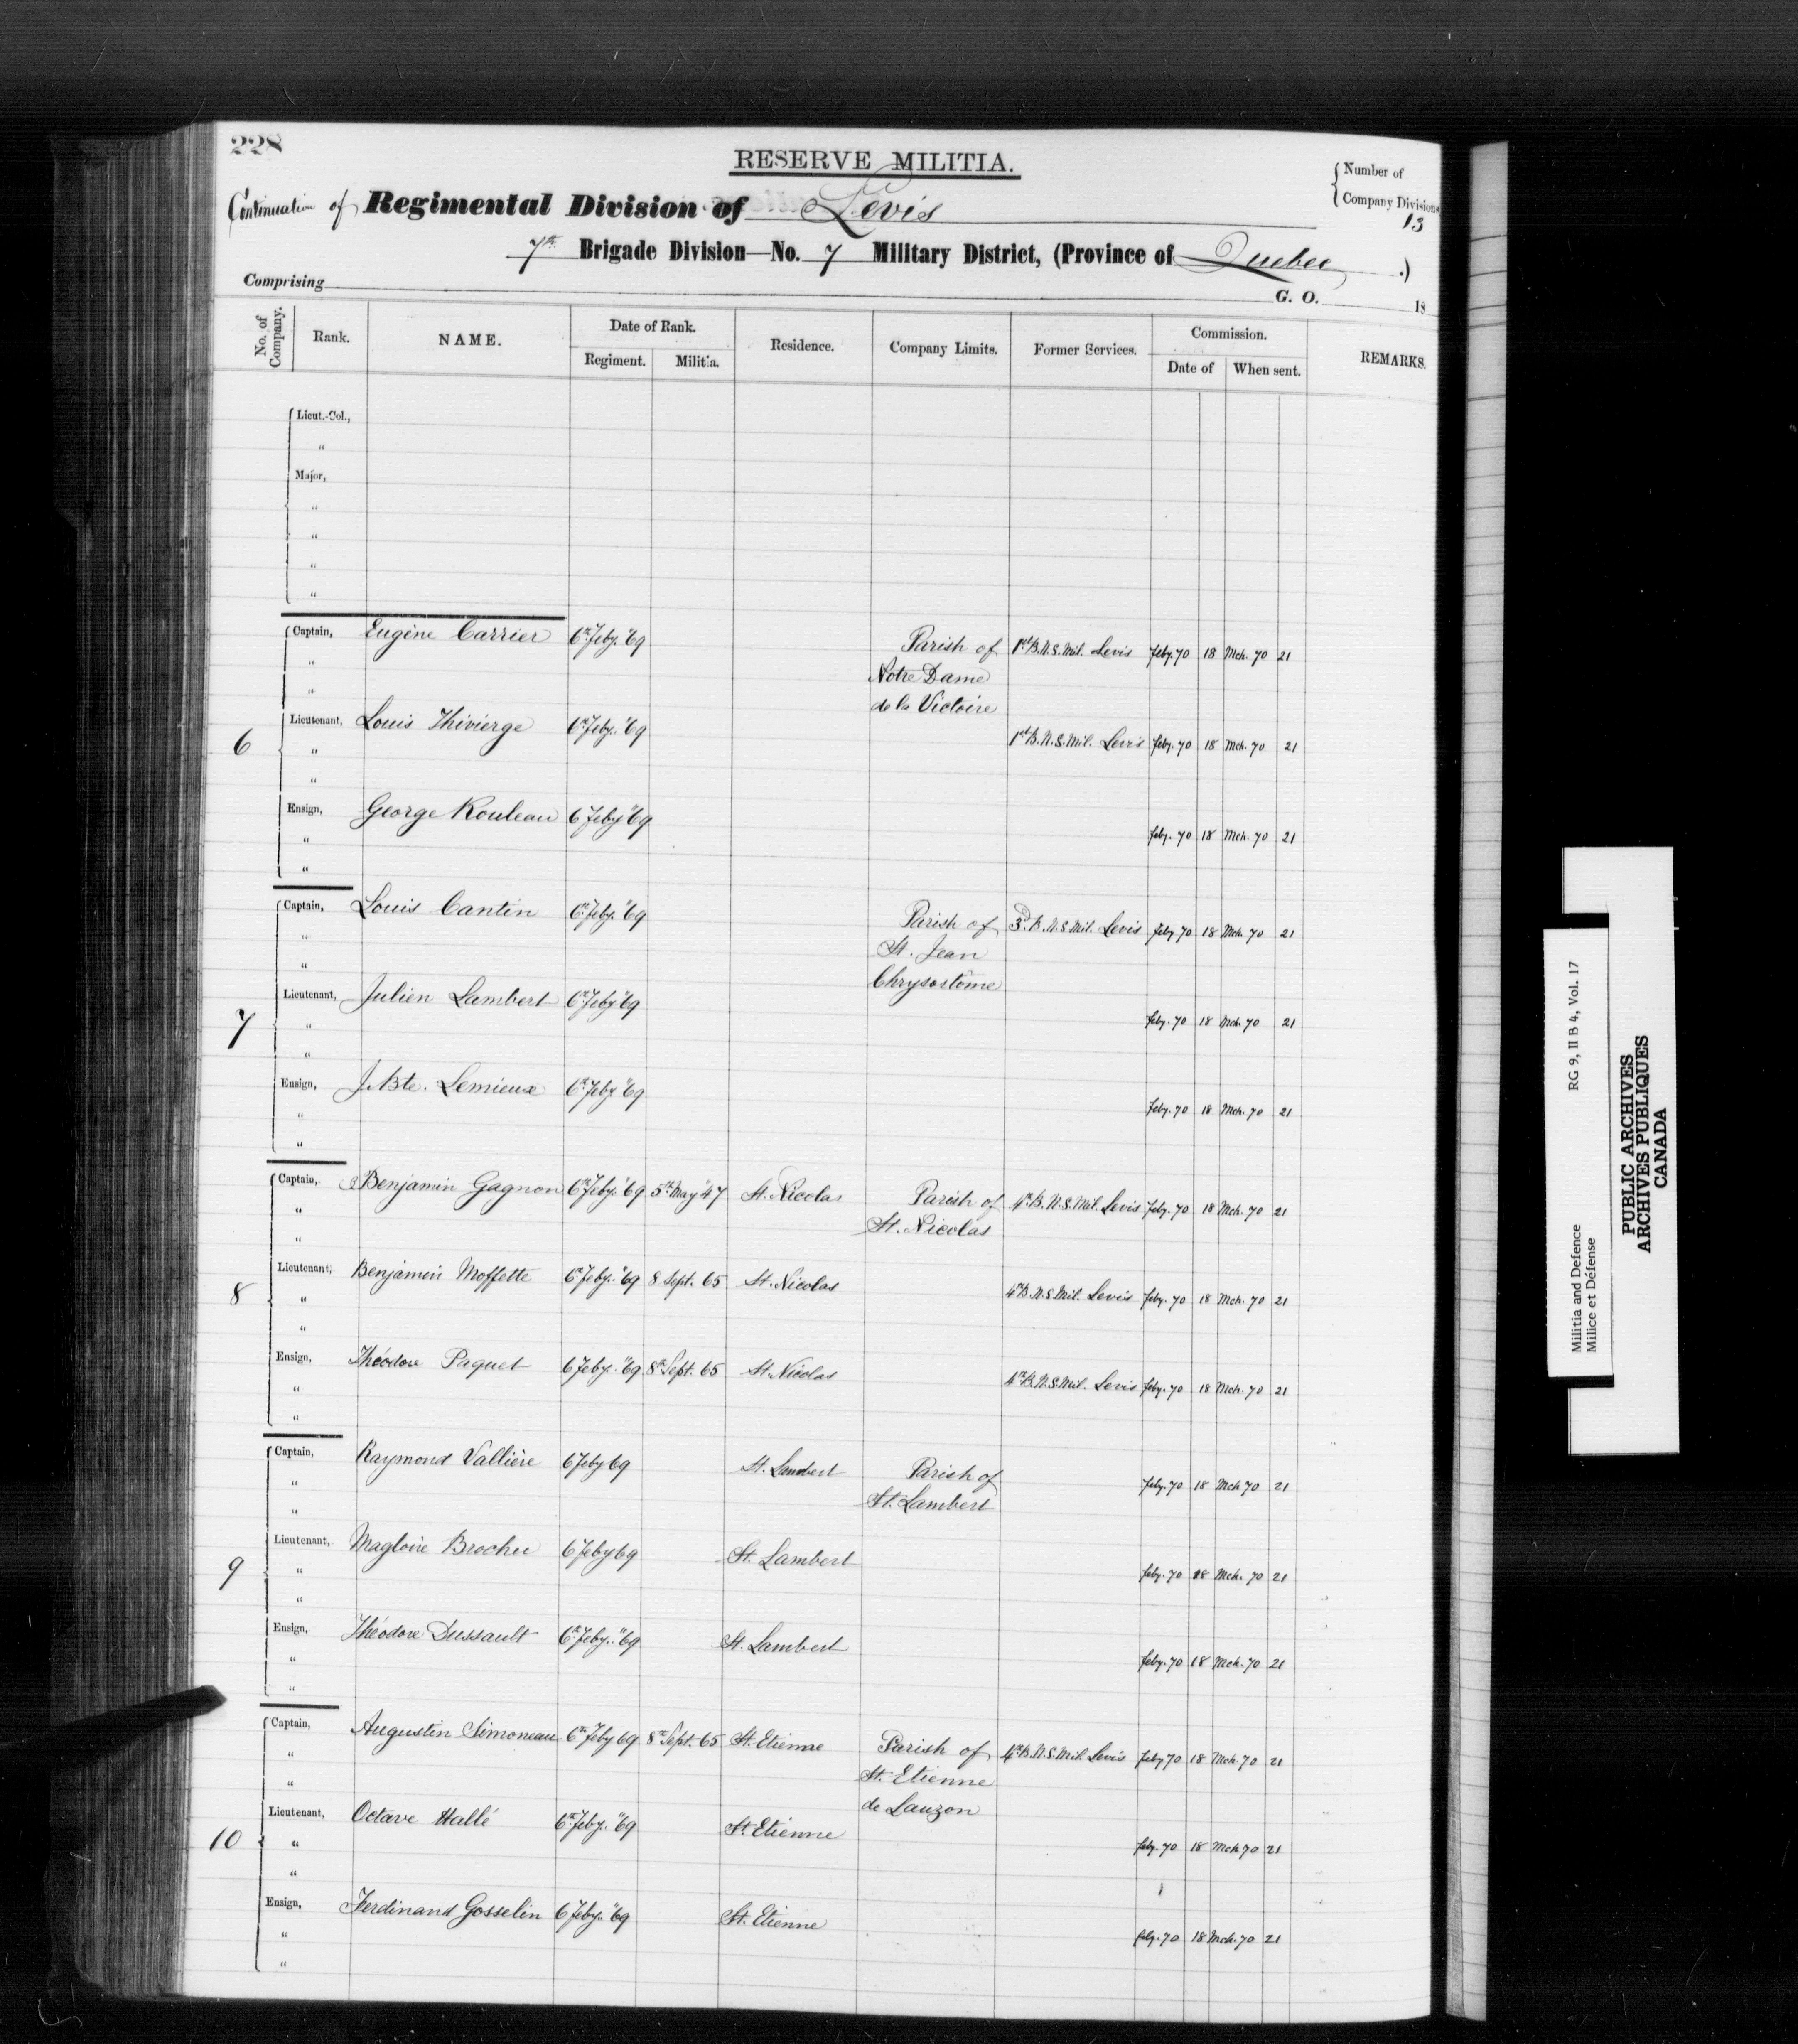 228
RESERVE MILITIA.
Number of
Company Divisions
13
Continuation of Regimental Division of Levis
7th Brigade Division—No. 7 Military District, (Province of Quebec .)
Comprising G. O. 18
No. of Company. Rank. NAME. Date of Rank. Residence. Company Limits. Former Services. Commission. REMARKS.
Regiment. Militia. Date of When sent.
Lieut.-Col.,
"
Major,
"
"
"
"
Captain, Eugène Carrier 6th Feby. "69 Parish of 1st B.N.S. Mil. Levis Feby. 70 18 Mch. 70 21
" Notre Dame
" de la Victoire
Lieutenant, Louis Thivierge 6th Feby. "69 1st B.N.S. Mil. Levis Feby. 70 18 Mch. 70 21
6 "
"
Ensign, George Rouleau 6 Feby "69 Feby. 70 18 Mch. 70 21
"
"
Captain, Louis Cantin 6th Feby. "69 Parish of 3d. B.N.S. Mil. Levis Feby 70 18 Mch. 70 21
" St. Jean
" Chrysostôme
Lieutenant, Julien Lambert 6th Feby "69 Feby. 70 18 Mch. 70 21
7 "
"
Ensign, J. Bte. Lemieux 6th Feby "69 Feby. 70 18 Mch. 70 21
"
"
Captain, Benjamin Gagnon 6th Feby. "69 5th May "47 St. Nicolas Parish of 4th B.N.S. Mil. Levis Feby. 70 18 Mch. 70 21
" St. Nicolas
"
Lieutenant, Benjamin Moffette 6th Feby. "69 8 Sept. 65 St. Nicolas 4th B.N.S. Mil. Levis Feby. 70 18 Mch. 70 21
8 "
"
Ensign, Théodore Paquet 6 Feby. "69 8th Sept. 65 St. Nicolas 4th B.N.S. Mil. Levis Feby. 70 18 Mch. 70 21
"
"
Captain, Raymond Vallière 6 Feby 69 St. Lambert Parish of Feby. 70 18 Mch 70 21
" St. Lambert
"
Lieutenant, Magloire Brochu 6 Feby 69 St. Lambert Feby. 70 18 Mch. 70 21
9 "
"
Ensign, Théodore Dussault 6th Feby. "69 St. Lambert Feby. 70 18 Mch. 70 21
"
"
Captain, Augustin Simoneau 6th Feby 69 8th Sept. 65 St. Etienne Parish of 4th B.N.S. Mil. Levis Feby 70 18 Mch. 70 21
" St. Etienne
" de Lauzon
Lieutenant, Octave Hallé 6th Feby. "69 St. Etienne Feby. 70 18 Mch 70 21
10 "
"
Ensign, Ferdinand Gosselin 6 Feby. "69 St. Etienne Feby. 70 18 Mch. 70 21
"
"
Militia and Defence RG 9, II B 4, Vol. 17
Milice et Défense
PUBLIC ARCHIVES
ARCHIVES PUBLIQUES
CANADA